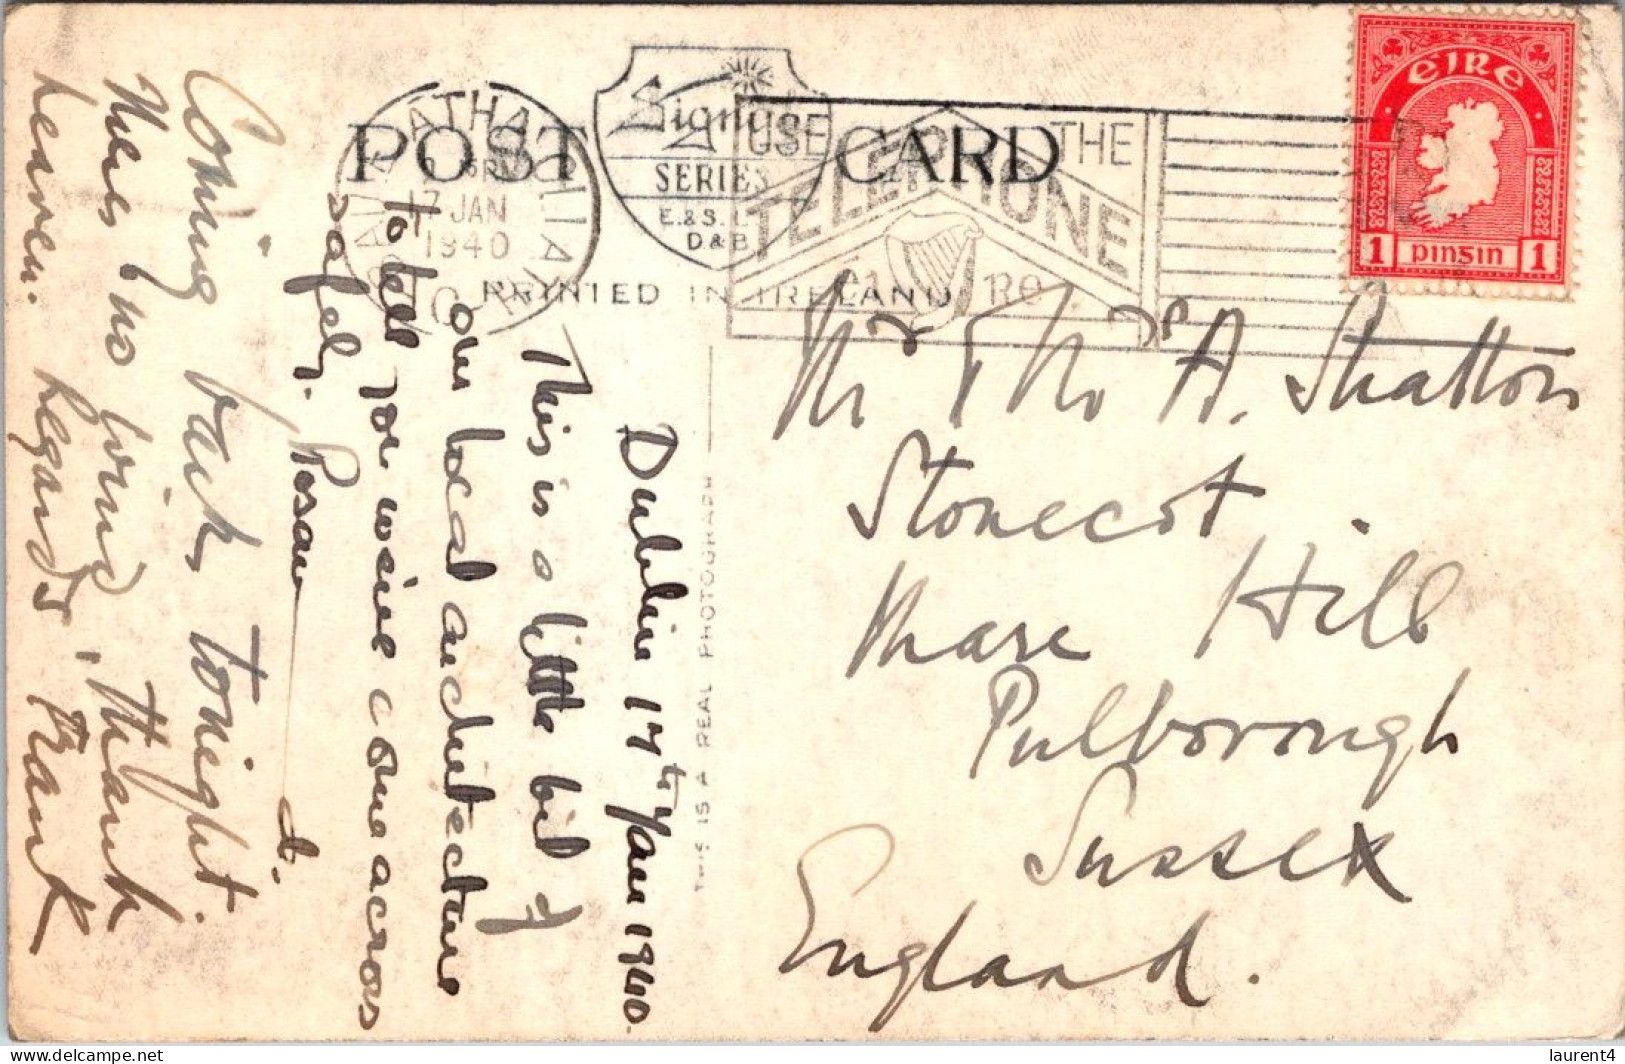 POST CARD
Signus
SERIES
E. & S. L.
D & B
PRINTED IN IRELAND
BAILE ÁTHA CLIATH
17 JAN
1940
USE THE
TELEPHONE
EIRE
1 PINGIN 1
THIS IS A REAL PHOTOGRAPH
Dublin 17th Jan 1940
This is a little bit of
our local architecture
to tell you we've come across
safely.
Coming back tonight.
There's no going, thank
heaven. Regards Frank
Mr & Mrs A. Shatton
Stonecot
Mare Hill
Pulborough
Sussex
England.
laurent4